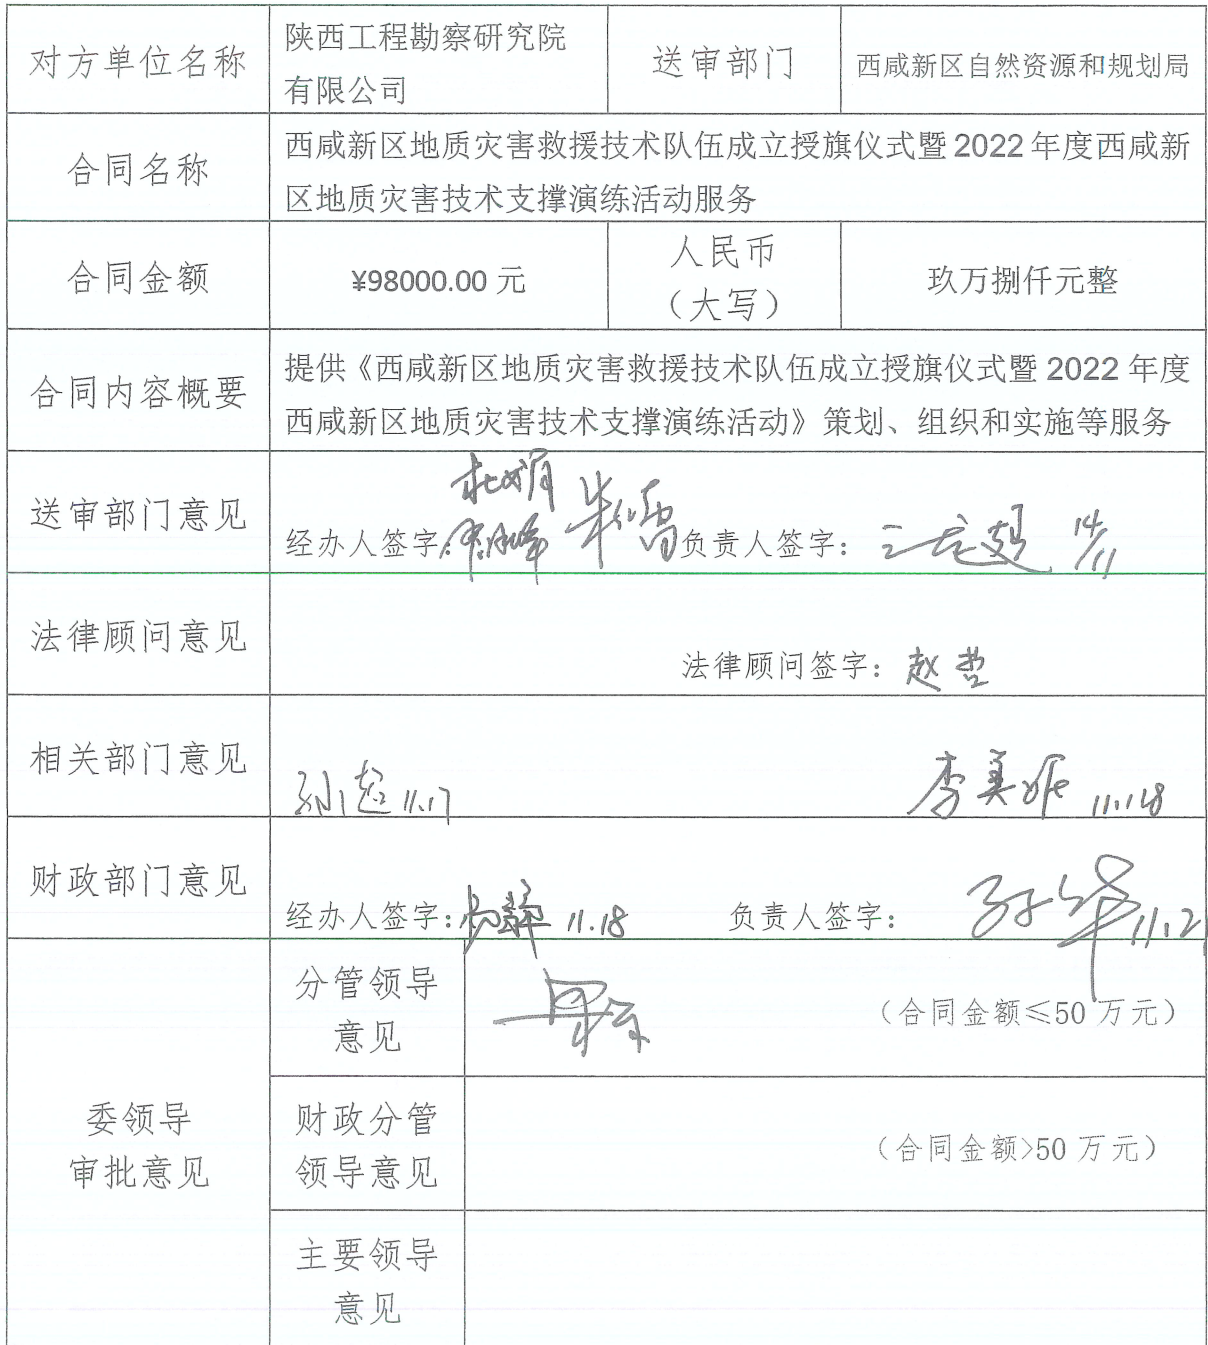 对方单位名称
陕西工程勘察研究院
有限公司
送审部门
西咸新区自然资源和规划局
合同名称
西咸新区地质灾害救援技术队伍成立授旗仪式暨 2022 年度西咸新
区地质灾害技术支撑演练活动服务
合同金额
¥98000.00 元
人民币
（大写）
玖万捌仟元整
合同内容概要
提供《西咸新区地质灾害救援技术队伍成立授旗仪式暨 2022 年度
西咸新区地质灾害技术支撑演练活动》策划、组织和实施等服务
送审部门意见
经办人签字:
负责人签字: 14/11
法律顾问意见
法律顾问签字: 赵哲
相关部门意见
孙超 11.17
李美妮 11.18
财政部门意见
经办人签字: 11.18
负责人签字: 孙华 11.21
委领导
审批意见
分管领导
意见
（合同金额≤50 万元）
财政分管
领导意见
（合同金额>50 万元）
主要领导
意见